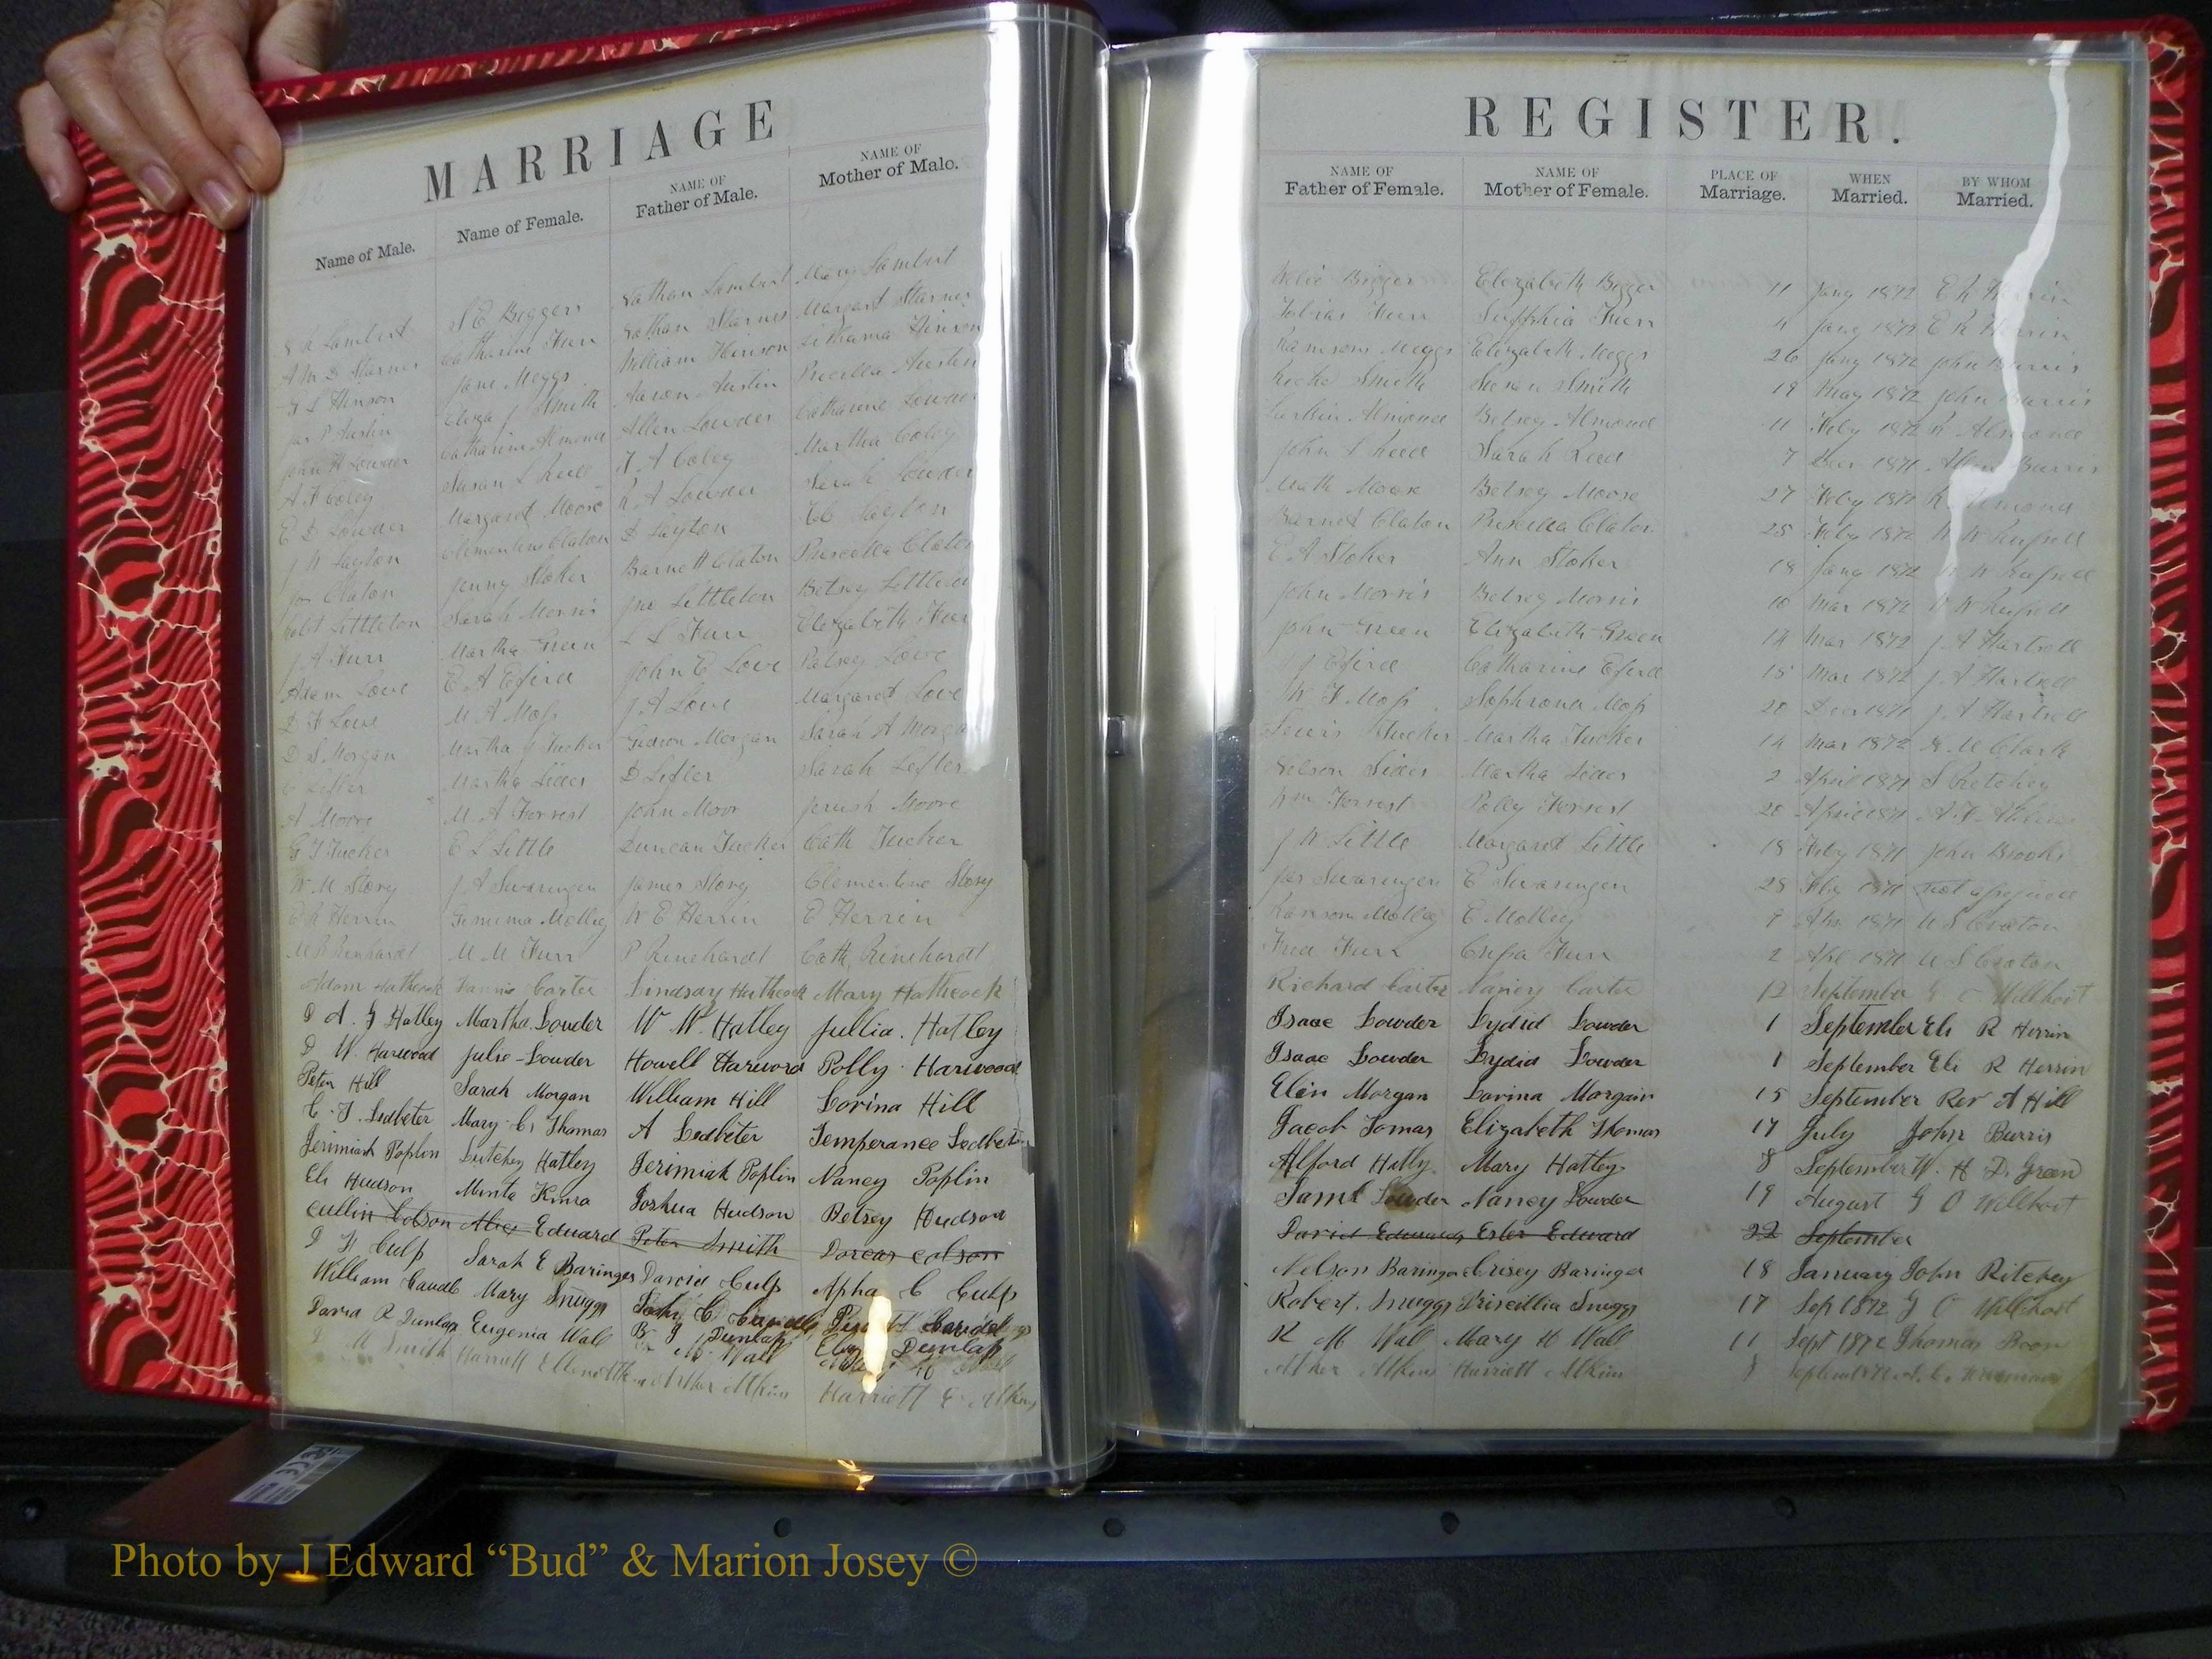 MARRIAGE
Name of Male. Name of Female. NAME OF Father of Male. NAME OF Mother of Male.
Lambert S E Biggers Nathan Lambert Mary Lambert
A M D Starnes Catharine Furr Nathan Starnes Margaret Starnes
G L Hinson Jane Meggs William Hinson Hinson
Jas P Austin Eliza J Smith Aaron Austin Precilla Austin
John H Lowder Catharine Almond Allen Lowder Catharine Lowder
A F Coley Susan L Reed J A Coley Martha Coley
E D Lowder Margaret Moose R A Lowder Sarah Lowder
J W Layton Clementine Claton D Layton Layton
Claton Jenny Stoker Barnett Claton Precilla Claton
Littleton Sarah Morris Jno Littleton Betsey Littleton
J A Furr Martha Green L L Furr Elizabeth Furr
Adam Love E A Efird John E Love Patsey Love
D F Love M A Moss J A Love Margaret Love
D S Morgan Martha J Tucker Gideon Morgan Sarah A Morgan
Lefler Martha Sides D Lefler Sarah Lefler
A Moore M A Forrest John Moor Moore
G T Tucker E L Little Duncan Tucker Cath Tucker
W M Story J A Swaringen James Story Clementine Story
E R Herrin Jemima Molley W E Herrin E Herrin
M B Rinehardt M M Furr P Rinehardt Cath Rinehardt
Adam Hathcock Fannie Carter Lindsay Hathcock Mary Hathcock
D A G Hatley Martha Lowder W W. Hatley Jullia. Hatley
D W. Harwood Julie Lowder Howell Harword Polly Harwood
Peter Hill Sarah Morgan William Hill Lorina Hill
C. T. Ledbeter Mary C. Thomas A Ledbeter Temperance Ledbeter
Jerimiah Poplin Hatley Jerimiah Poplin Nancy Poplin
Eli Hudson Minta Joshua Hudson Betsey Hudson
Cullin Colson Alice Eduard Peter Smith Dorcas Colson
D H Culp Sarah E Baringer David Culp Alpha C Culp
William Caudle Mary Snuggs John C Caudle
David R Dunlap Eugenia Wall B G Dunlap Dunlap
M Wall
D M Smith Harriett E Arther Atkins Harriett E. Atkins
REGISTER.
NAME OF Father of Female. NAME OF Mother of Female. PLACE OF Marriage. WHEN Married. BY WHOM Married.
Bigger Elizabeth Bigger 11 Jany 1872 E R Herrin
Tobias Furr Sophhia Furr 4 Jany 1872 E R Herrin
Ransom Meggs Elizabeth Meggs 26 Jany 1872 John Burris
Smith Susan Smith 19 May 1872 John Burris
Larkin Almond Betsey Almond 11 Feby 1872 R Almond
John L Reed Sarah Reed 7 Decr 1871 Allen Burris
Math Moose Betsey Moose 27 Feby 1872 R Almond
Barnet Claton Precilla Claton 25 Feby 1872 W W Russell
E A Stoker Ann Stoker 18 Jany 1872 W W Russell
John Morris Betsey Morris 10 Mar 1872 W W Russell
John Green Elizabeth Green 14 Mar 1872 J A Hartsell
J J Efird Catharine Efird 15 Mar 1872 J A Hartsell
W F Moss Sophrona Moss 20 Decr 1871 J A Hartsell
Lewis Tucker Martha Tucker 14 Mar 1872 Clark
Nelson Sides Martha Sides 2 April 1871 S Retchey
Wm Forrest Polly Forrest 20 April 1871
J W Little Margaret Little 18 Feby 1871 John Brooks
Jas Swaringen E Swaringen 28 Feby 1871 not assigned
Ranson Molley E Molley 9 Apr 1871 W S Caton
Furr Furr 2 Apl 1871 W S Caton
Richard Carter Nancy Carter 12 September G O Wilhoit
Isaac Lowder Lydid Lowder 1 September Eli R Herrin
Isaac Lowder Lydid Lowder 1 September Eli R Herrin
Elin Morgan Lovina Morgain 15 September Rev A Hill
Jacob Tomas Elizabeth Thomas 17 July John Burris
Alford Hatly Mary Hatley 8 September W. H D. Green
Saml Lowder Nancy Lowder 19 August G O Wilhoit
David Edwards Ester Edward 22 September
Nelson Baringer Crisey Baringer 18 January John Ritchey
Robert. Snuggs Priscillia Snuggs 17 Sep 1872 G O Wilhoit
R M Wall Mary H Wall 11 Sept 1872 Thomas Boon
Atkins Harriett Atkins 8 Septem 1872
Photo by J Edward “Bud” & Marion Josey ©